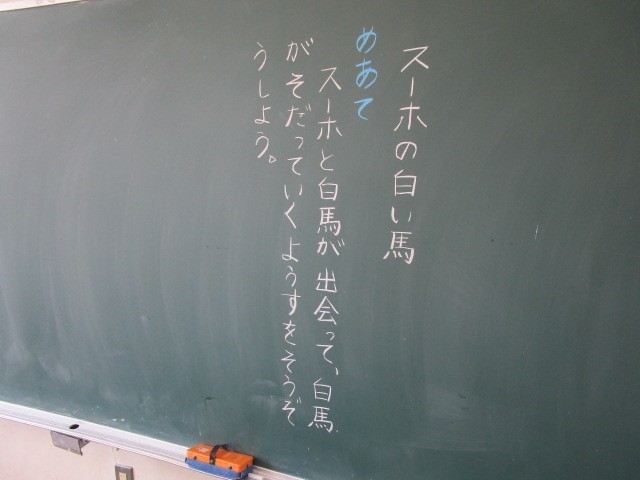 スーホの白い馬
めあて
スーホと白馬が出会って、白馬
がそだっていくようすをそうぞ
うしよう。